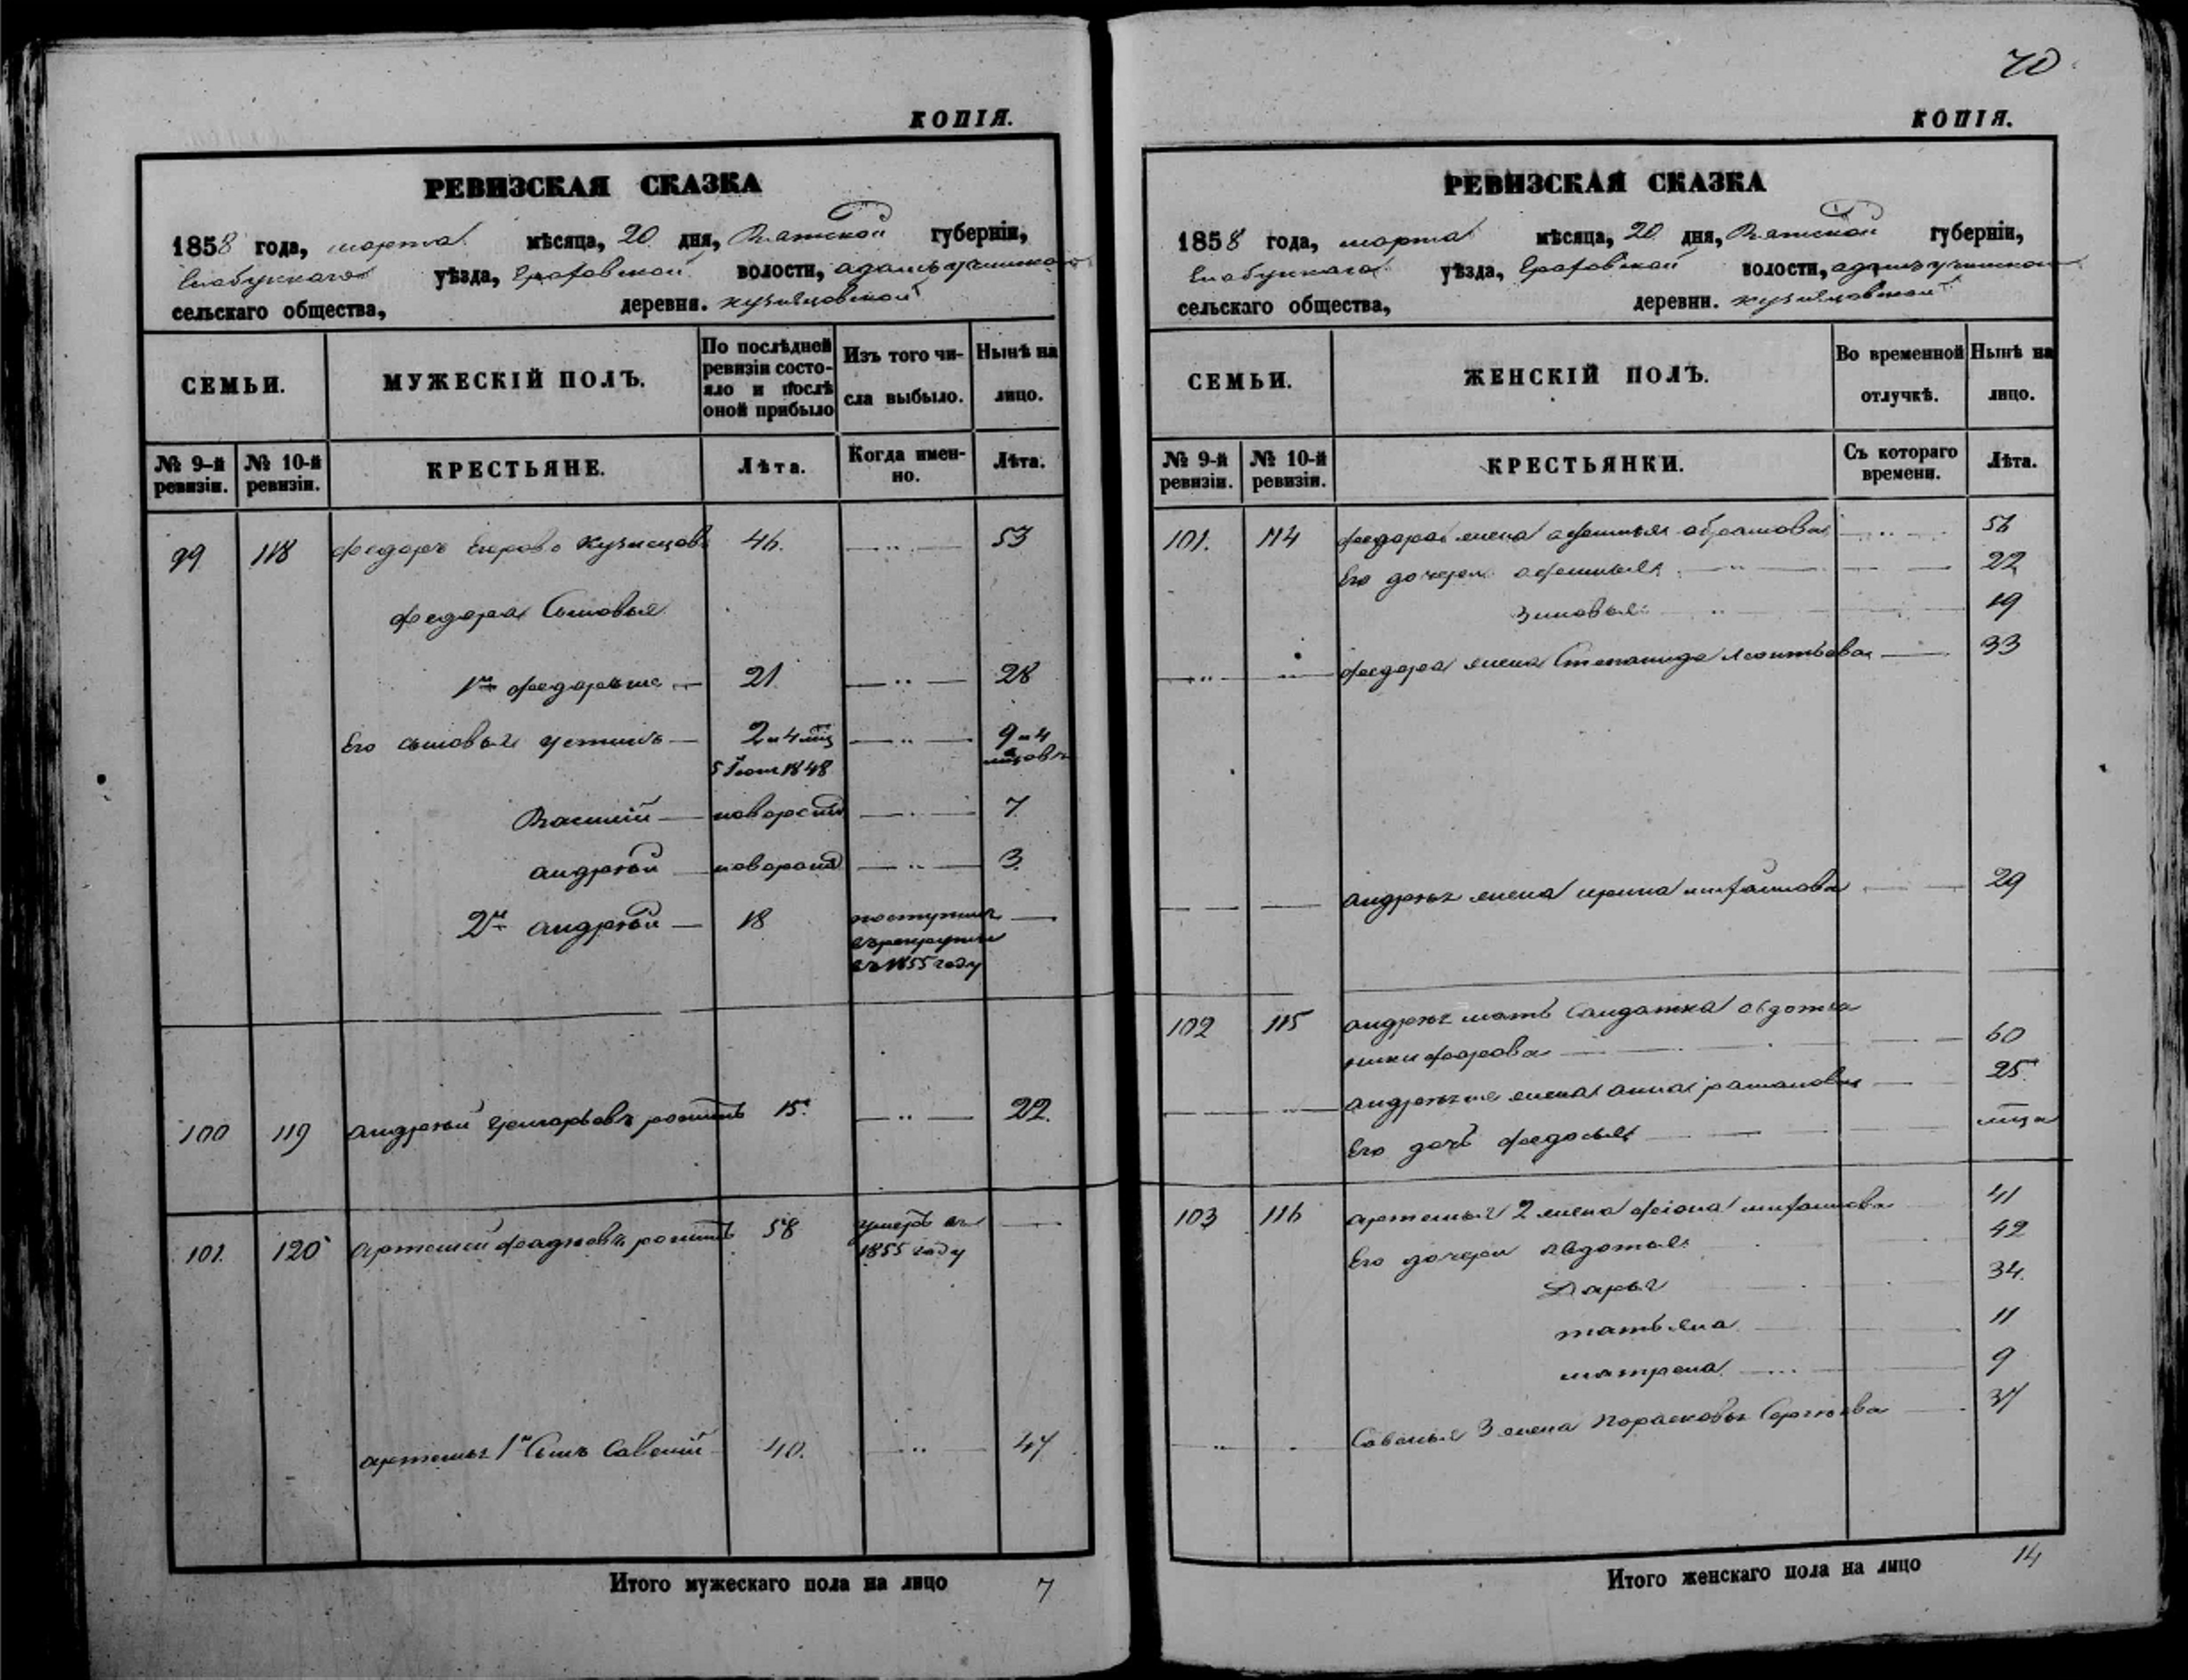 КОПІЯ.
РЕВИЗСКАЯ СКАЗКА
1858 года, марта мѣсяца, 20 дня, Вятской губерніи,
Елабужскаго уѣзда, волости,
сельскаго общества, деревни.
СЕМЬИ.
МУЖЕСКІЙ ПОЛЪ.
По послѣдней ревизіи состо-
яло и послѣ оной прибыло
Изъ того чи-
сла выбыло.
Нынѣ на
лицо.
№ 9-й ревизіи.
№ 10-й ревизіи.
КРЕСТЬЯНЕ.
Лѣта.
Когда имен-
но.
Лѣта.
99 118 Федоръ Егоровъ Кузнецовъ 46. 53
Федора Сыновья
1й Федоръ же 21 28
Его сыновья Устинъ 2 и 4 мѣс 9 и 4
5 Іюня 1848 мѣсцовъ
Василій новорожд 7
Андрей новорожд 3.
2й Андрей 18 поступилъ
въ рекруты
въ 1855 году
100 119 Андрей Григорьевъ 15. 22.
101. 120 Артемій 58 умеръ въ
1855 году
Артемья 1й Сынъ Савелій 40. 47
Итого мужескаго пола на лицо 7
70
КОПІЯ.
РЕВИЗСКАЯ СКАЗКА
1858 года, марта мѣсяца, 20 дня, Вятской губерніи,
Елабужскаго уѣзда, волости,
сельскаго общества, деревни.
СЕМЬИ.
ЖЕНСКІЙ ПОЛЪ.
Во временной
отлучкѣ.
Нынѣ на
лицо.
№ 9-й ревизіи.
№ 10-й ревизіи.
КРЕСТЬЯНКИ.
Съ котораго
времени.
Лѣта.
101. 114 Федора жена Афимья Абрамова
Его дочери Афимья 22
Зиновья 19
Федора жена Степанида Леонтьева 33
Андрея жена Ирина Михайлова 29
102 115 Андрея мать Солдатка Авдотья
Никифорова 60
Андрея же жена Анна Романова 25
Его дочь Федосья
103 116 Артемья 2 жена Михайлова 41
Его дочери Авдотья 42
Дарья 34.
Татьяна 11
Матрена 9
Савелья 3 жена Парасковья Сергѣева 37
Итого женскаго пола на лицо 14